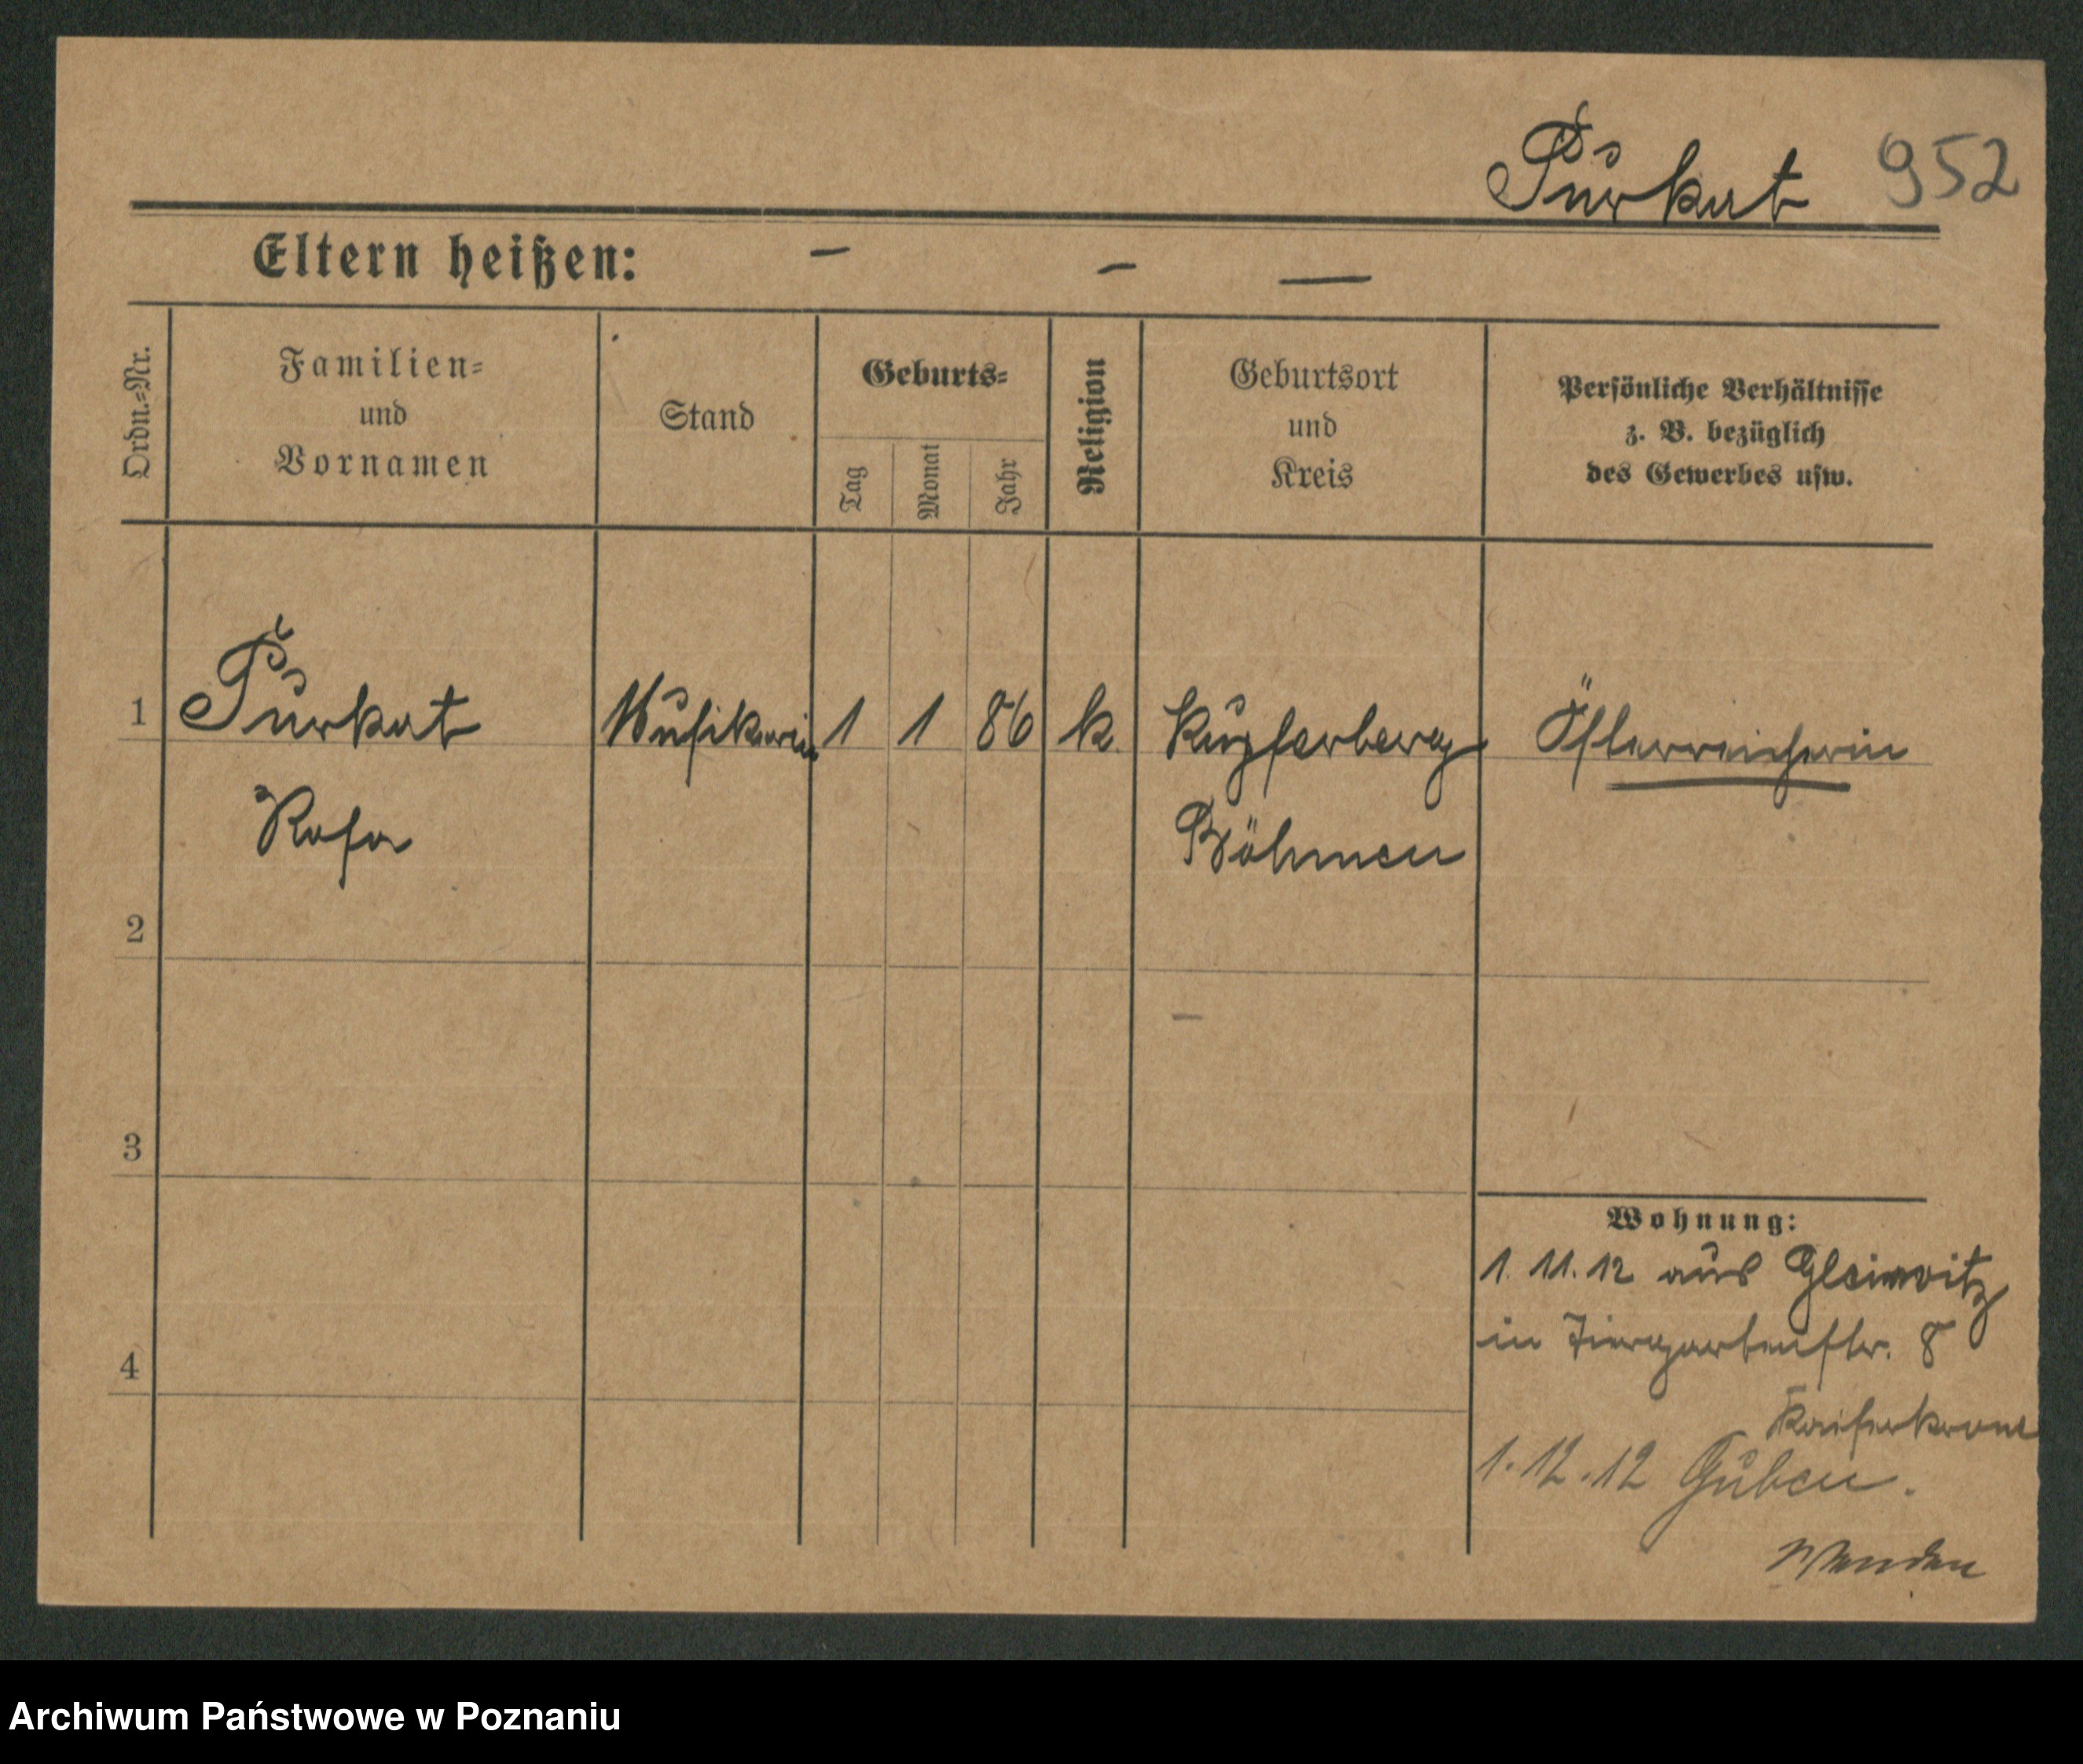 Purkat 952
Eltern heißen: — — —
Ordn.-Nr.
Familien-
und
Vornamen
Stand
Geburts-
Tag
Monat
Jahr
Religion
Geburtsort
und
Kreis
Persönliche Verhältnisse
z. B. bezüglich
des Gewerbes usw.
1 Purkat Musikerin 1 1 86 k. Kupferberg Österreicherin
Rosa Böhmen
2
3
Wohnung:
1.11.12 aus Gleiwitz
in Tiergartenstr. 8
4
Kaiserkrone
1.12.12 Guben.
Wenden
Archiwum Państwowe w Poznaniu